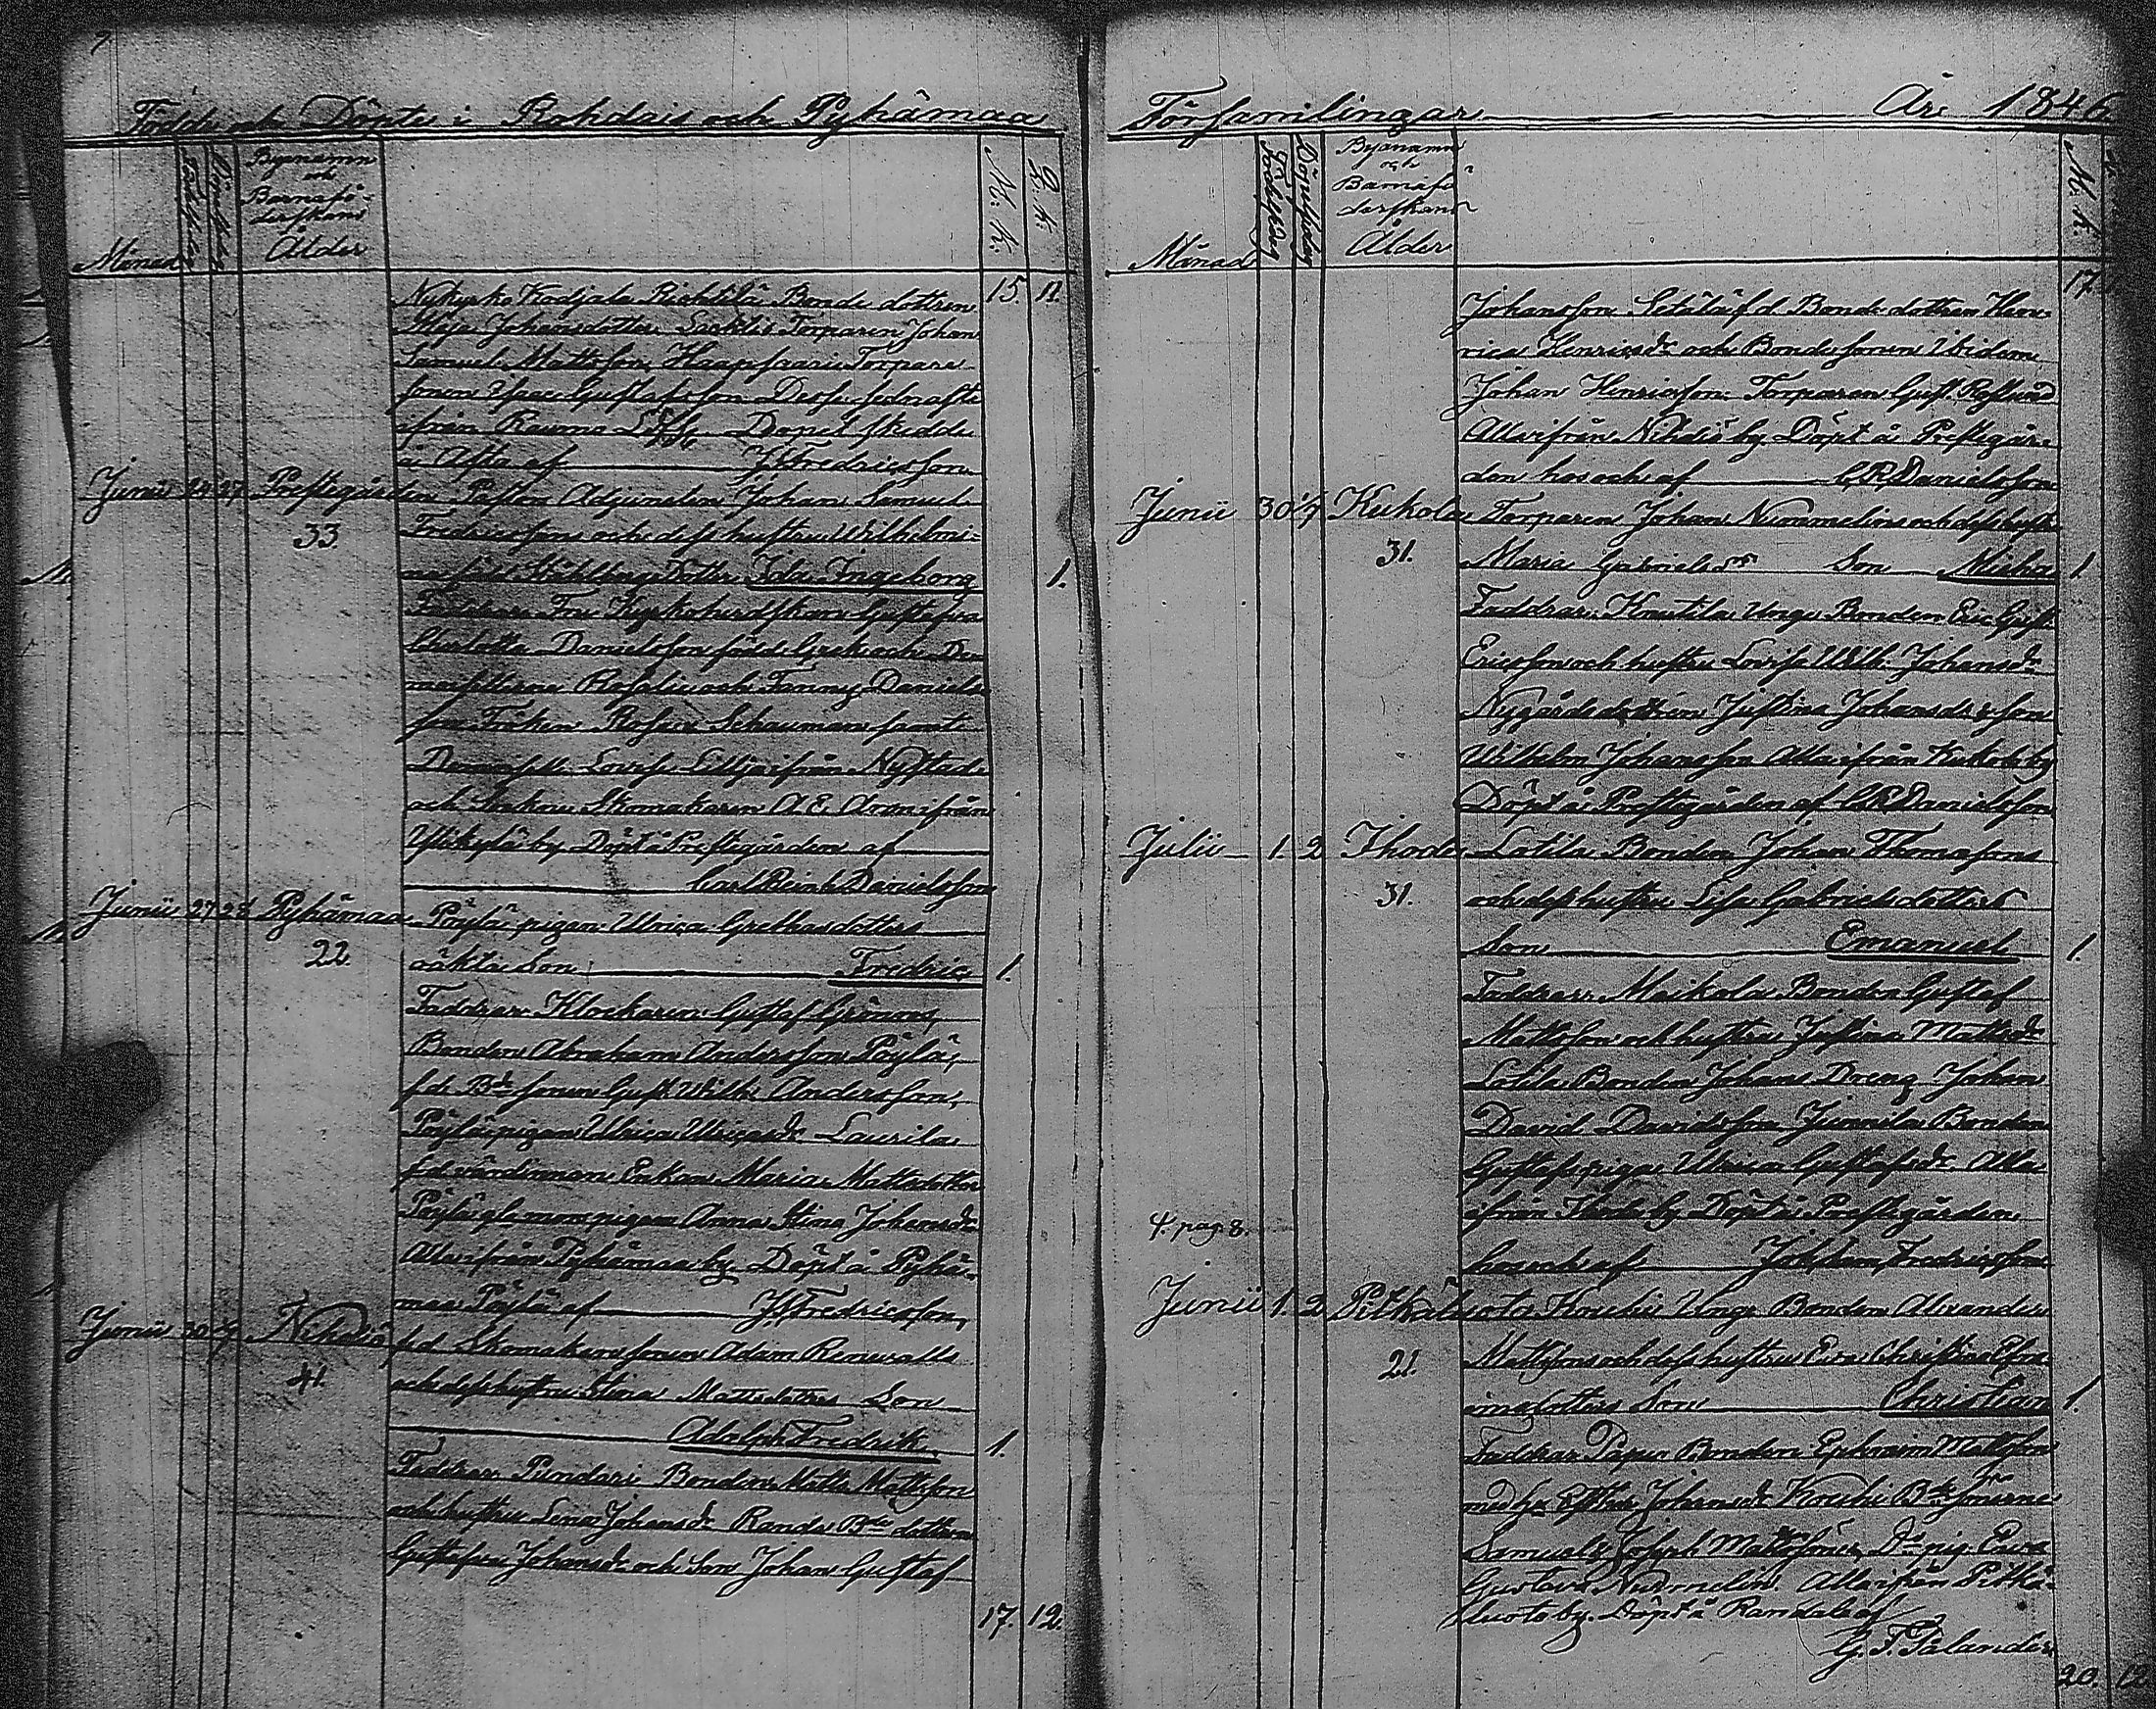 Födde och Döpte i Rohdais och Pyhämaa
Månad Födelsedag Döpelsedag Byanamn och Barnaföderskans Ålder M. k. Q. k.
15. 11.
Nykyrko Kodjala Bonde dottren
Maja Johansdotter Torparen Johan
Samuel Mattsson, Haapsaari Torpare
sonen Isaac Gustafsson Desse sednaste
ifrån Rauma Döpel skedde
å af J. S. Fredricsson
Junii 27 Prestegården Pastors Adjuncten Johan Samuel
33. Fredricssons och dess hustru Wilhelmi-
na född Dotter Ida Ingeborg 1.
Faddrar Fru Kyrkoherdskan Gustafva
Charlotta Danielsson född och De-
moisellerna Rosalie och Fanny Daniels-
son Fröken Schauman samt
Demoiselle Lovisa ifrån Nystad
och Skomakaren A. E. ifrån
Ylikylä by Döpt å Prestegården af
Carl Reinh. Danielsson
Junii 27 28 Pyhämaa Pöylä pigan Ulrica Grethasdotters
22. oäkta Son Fredric 1
Faddrar Klockaren Gustaf Grönroos,
Bonden Abraham Andersson Pöylä,
fd. Bde sonen Gust. Wilh. Andersson,
Pöylä pigan Ulrica Laurila
fd värdinnan Enkan Maria Mattsdotter
Pöylä gl. mors pigan Anna Stina Johansdr
Alla ifrån Pyhämaa by. Döpt å Pyhä-
maa Pöylä af J. S. Fredricsson,
Junii 30 Nihdiö fd Skomakare sonen Adam Renvalls
41. och dess hustru Stina Mattsdotters Son
Adolph Fredrik 1.
Faddrar Pundari Bonden Matts Mattsson
och hustru Lena Johansdr Randa Bde dottren
Gustafva Johansdr och Son Johan Gustaf
17. 12.
Församlingar År 1846
Månad Födelsedag Döpelsedag Byanamn och Barnaföderskans Ålder M. k.
17.
Johansson Setälä fd Bonde dottren Hen-
rica Henricsdr och Bonde sonen Ibidem
Johan Henricsson Torparen Gust. Roslund
Alla ifrån Nihdiö by Döpt å Prestegår-
den hos och af C. R. Danielsson
Junii 30 Kukola Torparen Johan Nummelins och dess hustru
31. Maria Gabrielsdrs Son Micha 1
Faddrar Knutila Unga Bonden Eric Gust.
Ericsson och hustru Lovisa Wilh. Johansdr
Nygårds dottren Justina Johansdr o Son
Wilhelm Johansson Alla ifrån Kukola by
Döpt å Prestegården af C R Danielsson
Julii 1. 2 Ihode Lotila Bonden Johan Thomassons
31. och dess hustru Lisa Gabrielsdotters
Son Emanuel 1.
Faddrar Maikola Bonden Gustaf
Mattsson och hustru Justina Mattsdr
Lotila Bonden Johans Dreng Johan
David Davidsson Junnila Bonden
Gustafs piga Ulrica Gustafsdr Alla
ifrån Ihode by Döpt å Prestegården
hos och af Joh. Sam. Fredricsson
4. pag. 8.
Junii 1. 2 Pitkäluoto Kouhi Unga Bonden Alexander
21. Mattssons och dess hustru Eva Christina Efra-
imsdotters Son Christian 1.
Faddrar Bonden Ephraim Mattsson
med hu Esther Johansdr Kouhi Bde sönerne
Samuel &amp; Joseph Mattssöner, Ds pig. Eva
Gustava Nummelin. Alla ifrån Pitkä-
luoto by. Döpt å Randala af
G. F. Palander.
20. 12